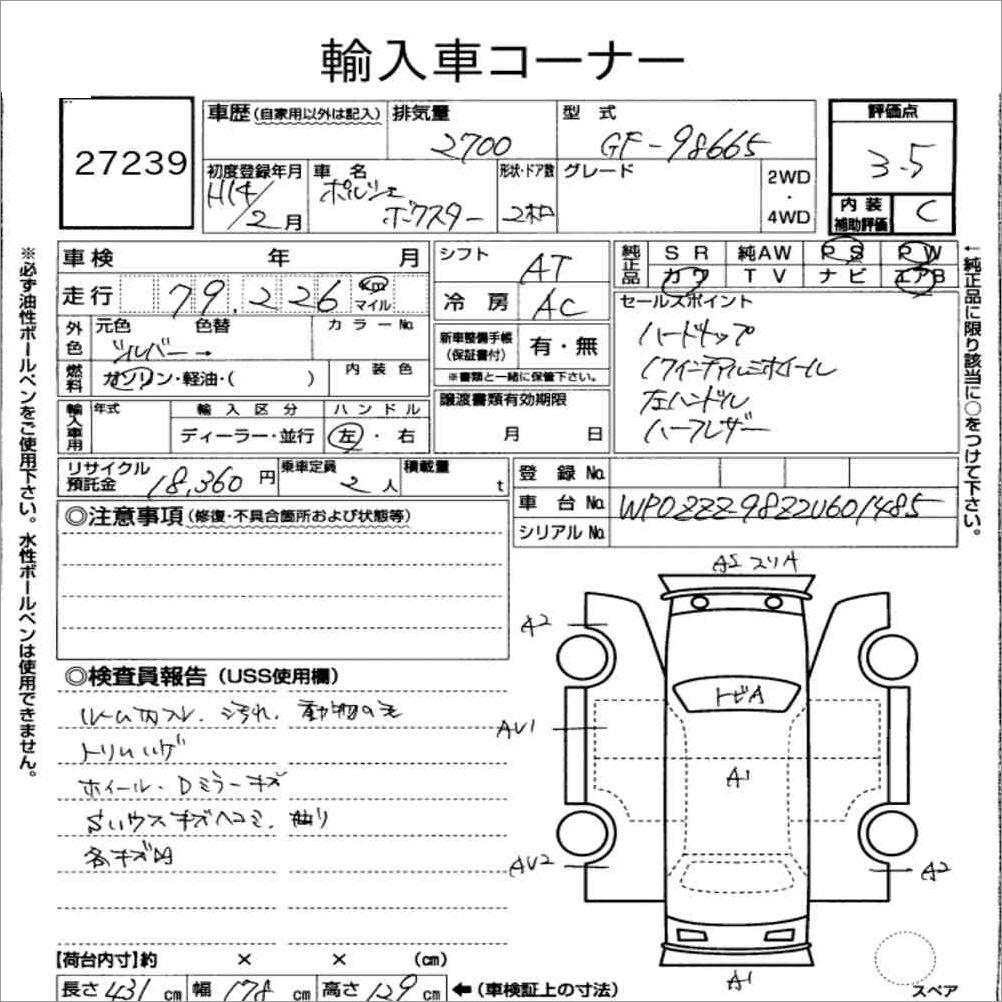 輸入車コーナー
27239
車歴 (自家用以外は記入)
排気量
2700
型式
GF-98665
評価点
3.5
初度登録年月
H14/2月
車名
ポルシェ
ボクスター
形状・ドア数
2
グレード
2WD
・
4WD
内装
補助評価
C
車検 年 月
走行 79,226 km
マイル
外色
元色 色替
シルバー →
カラーNo.
燃料
ガソリン・軽油・( )
内装色
輸入車用
年式
輸入区分
ディーラー・並行
ハンドル
左・右
シフト
AT
冷房
AC
新車整備手帳
(保証書付)
有・無
※書類と一緒に保管下さい。
譲渡書類有効期限
月 日
純正品
SR 純AW PS PW
カワ TV ナビ エアB
セールスポイント
ハードトップ
17インチアルミホイール
左ハンドル
ハーフレザー
リサイクル
預託金
18,360円
乗車定員
2人
積載量
t
登録No.
車台No.
WP0ZZZ98Z2U601485
シリアルNo.
◎注意事項 (修復・不具合箇所および状態等)
◎検査員報告 (USS使用欄)
ルーム内スレ、汚れ、動物の毛
トリムハゲ
ホイール・Dミラーキズ
キズヘコミ、曲り
各キズ凹
A2
AV1
AV2
トビA
A1
A2
A1
【荷台内寸】約 × × (cm)
長さ431cm 幅178cm 高さ129cm ←(車検証上の寸法)
スペア
※必ず油性ボールペンをご使用下さい。水性ボールペンは使用できません。
←純正品に限り該当に○をつけて下さい。